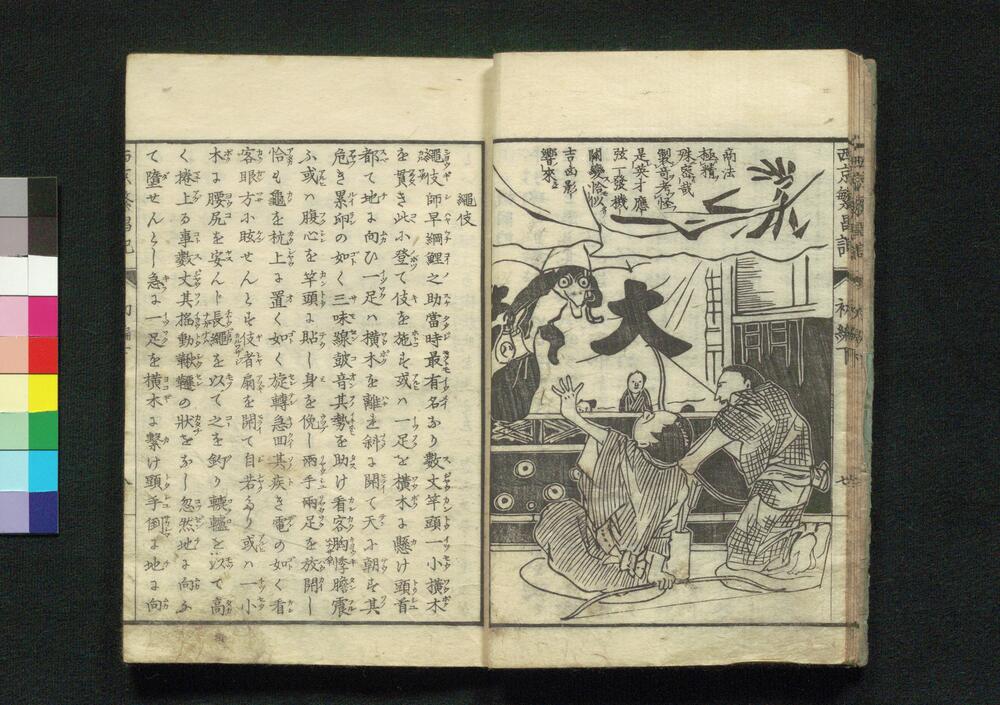 西京繁昌記
初編下
七
商法
極精
殊密哉
製奇考怪
是英才應
弦一發機
関變恰似
吉凶影
響來
大
繩伎
繩伎師早綱鯉之助當時最有名ナリ數丈竿頭一小橫木
を貫き此ニ登て伎を施も或ハ一足を橫木よ懸け頭首
都て地よ向ひ一足ハ橫木を離を斜よ開て天ニ朝も其
危き累卵の如く三味線鼓音其勢を助け看客胸悸膽震
ふ或ハ腹心を竿頭よ貼し身を俛し兩手兩足を放開し
恰も龜を杭上よ置く如く旋轉急回其疾き電の如く看
客眼方ニ眩せんとも伎者扇を開て自若たり或ハ一小
木よ腰尻を安んド長繩を以て之を釣り轆轤を以て高
く捲上る事數丈其搖動鞦韆の狀をなし忽然地よ向ふ
て墮せんとし急よ一足を橫木よ繋け頭手倒よ地よ向
西京繁昌記
八